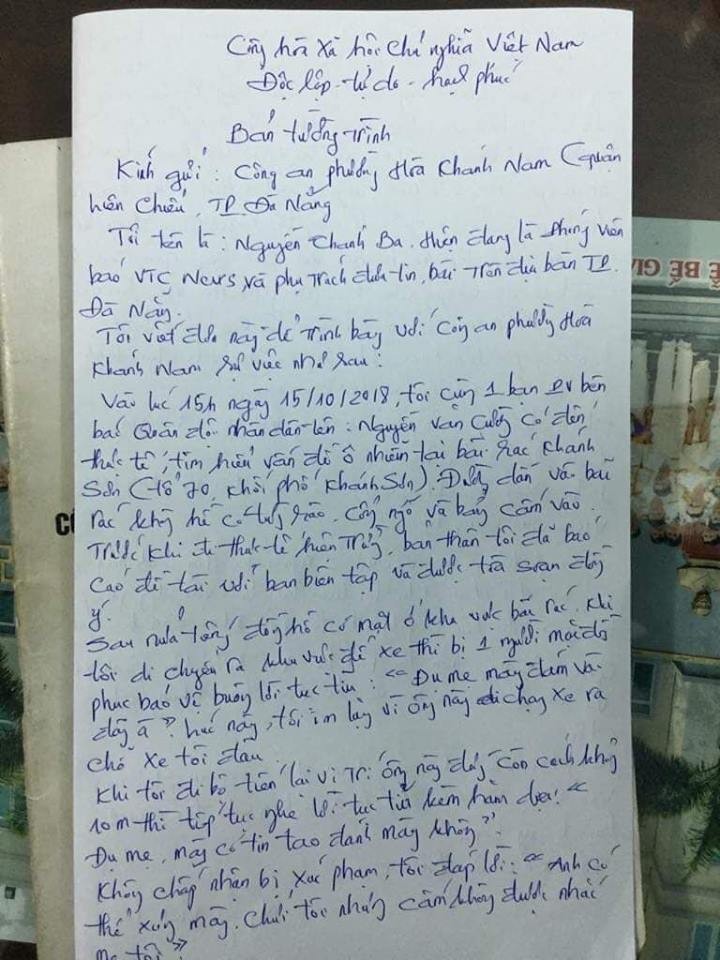 Cộng hòa Xã hội Chủ nghĩa Việt Nam
Độc lập - tự do - hạnh phúc
Bản tường trình
Kính gửi : Công an phường Hòa Khánh Nam (quận
Liên Chiểu, TP. Đà Nẵng
Tôi tên là : Nguyễn Chánh Ba. Hiện đang là phóng viên
báo VTC News, và phụ trách đưa tin, bài trên địa bàn TP.
Đà Nẵng.
Tôi viết đơn này để trình bày với Công an phường Hòa
Khánh Nam sự việc như sau :
Vào lúc 15h ngày 15/10/2018, tôi cùng 1 bạn PV bên
báo Quân đội nhân dân tên : Nguyễn Văn Cường có đến
thực tế, tìm hiểu vấn đề ô nhiễm tại bãi rác Khánh
Sơn (Tổ 70, khối phố Khánh Sơn). Đường dẫn vào bãi
rác không hề có tường rào, cổng ngõ và bảng cấm vào.
Trước khi đi thực tế hiện trường, bản thân tôi đã báo
cáo đề tài với ban biên tập và được tòa soạn đồng
ý.
Sau nửa tiếng đồng hồ có mặt ở khu vực bãi rác, khi
tôi di chuyển ra khu vực để xe thì bị 1 người mặc đồ
phục bảo vệ buông lời tục tĩu : "Đụ mẹ mày dám vào
đây à". Lúc này, tôi im lặng vì ông này chạy xe ra
chỗ xe tôi đậu.
Khi tôi đi bộ tiến lại vị trí ông này đứng còn cách khoảng
10m thì tiếp tục nghe lời tục tĩu kèm hăm dọa : "
Đụ mẹ, mày có tin tao đánh mày không".
Không chấp nhận bị xúc phạm, tôi đáp lời : "Anh có
thể xưng mày, chửi tôi nhưng cấm không được nhắc
mẹ tôi"
BẾ GI